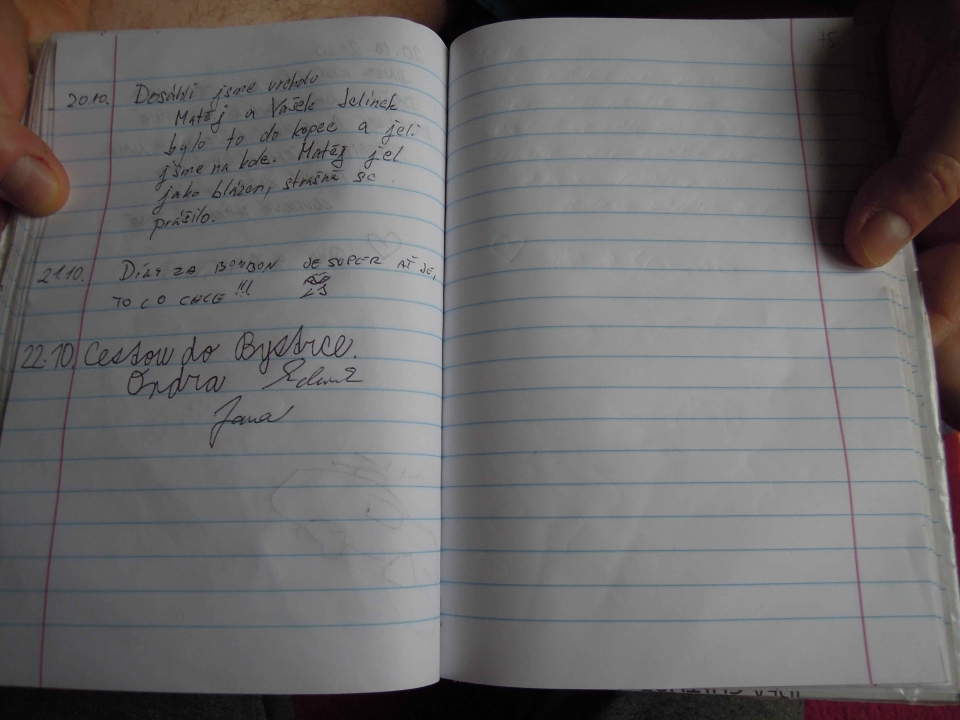 20.10. Dosáhli jsme vrcholu
Matěj a Vašek Jelínek
bylo to do kopec a jeli
jsme na kole. Matěj jel
jako blázen, strašně se
prášilo.
21.10. DÍKY ZA BONBON JE SUPER AŤ JE,
TO CO CHCE !!!
22.10. Cestou do Bystrce.
Ondra
Jana